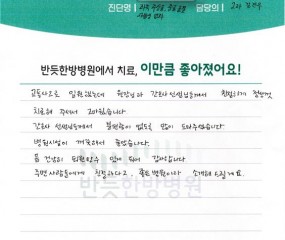 진단명
담당의
반듯한방병원에서 치료, 이만큼 좋아졌어요!
교통사고로 입원했는데 원장님과 간호사 선생님들께서 친절하게 정성껏
치료해 주셔서 고마웠습니다.
간호사 선생님들께서 불편함이 없도록 많이 도와주셨습니다
병원시설이 깨끗해서 좋았습니다.
몸 건강히 퇴원할수 있게 되어 감사합니다
주변 사람들에게 친절하다고, 좋은 병원이다 소개해 드릴게요.
반듯한방병원